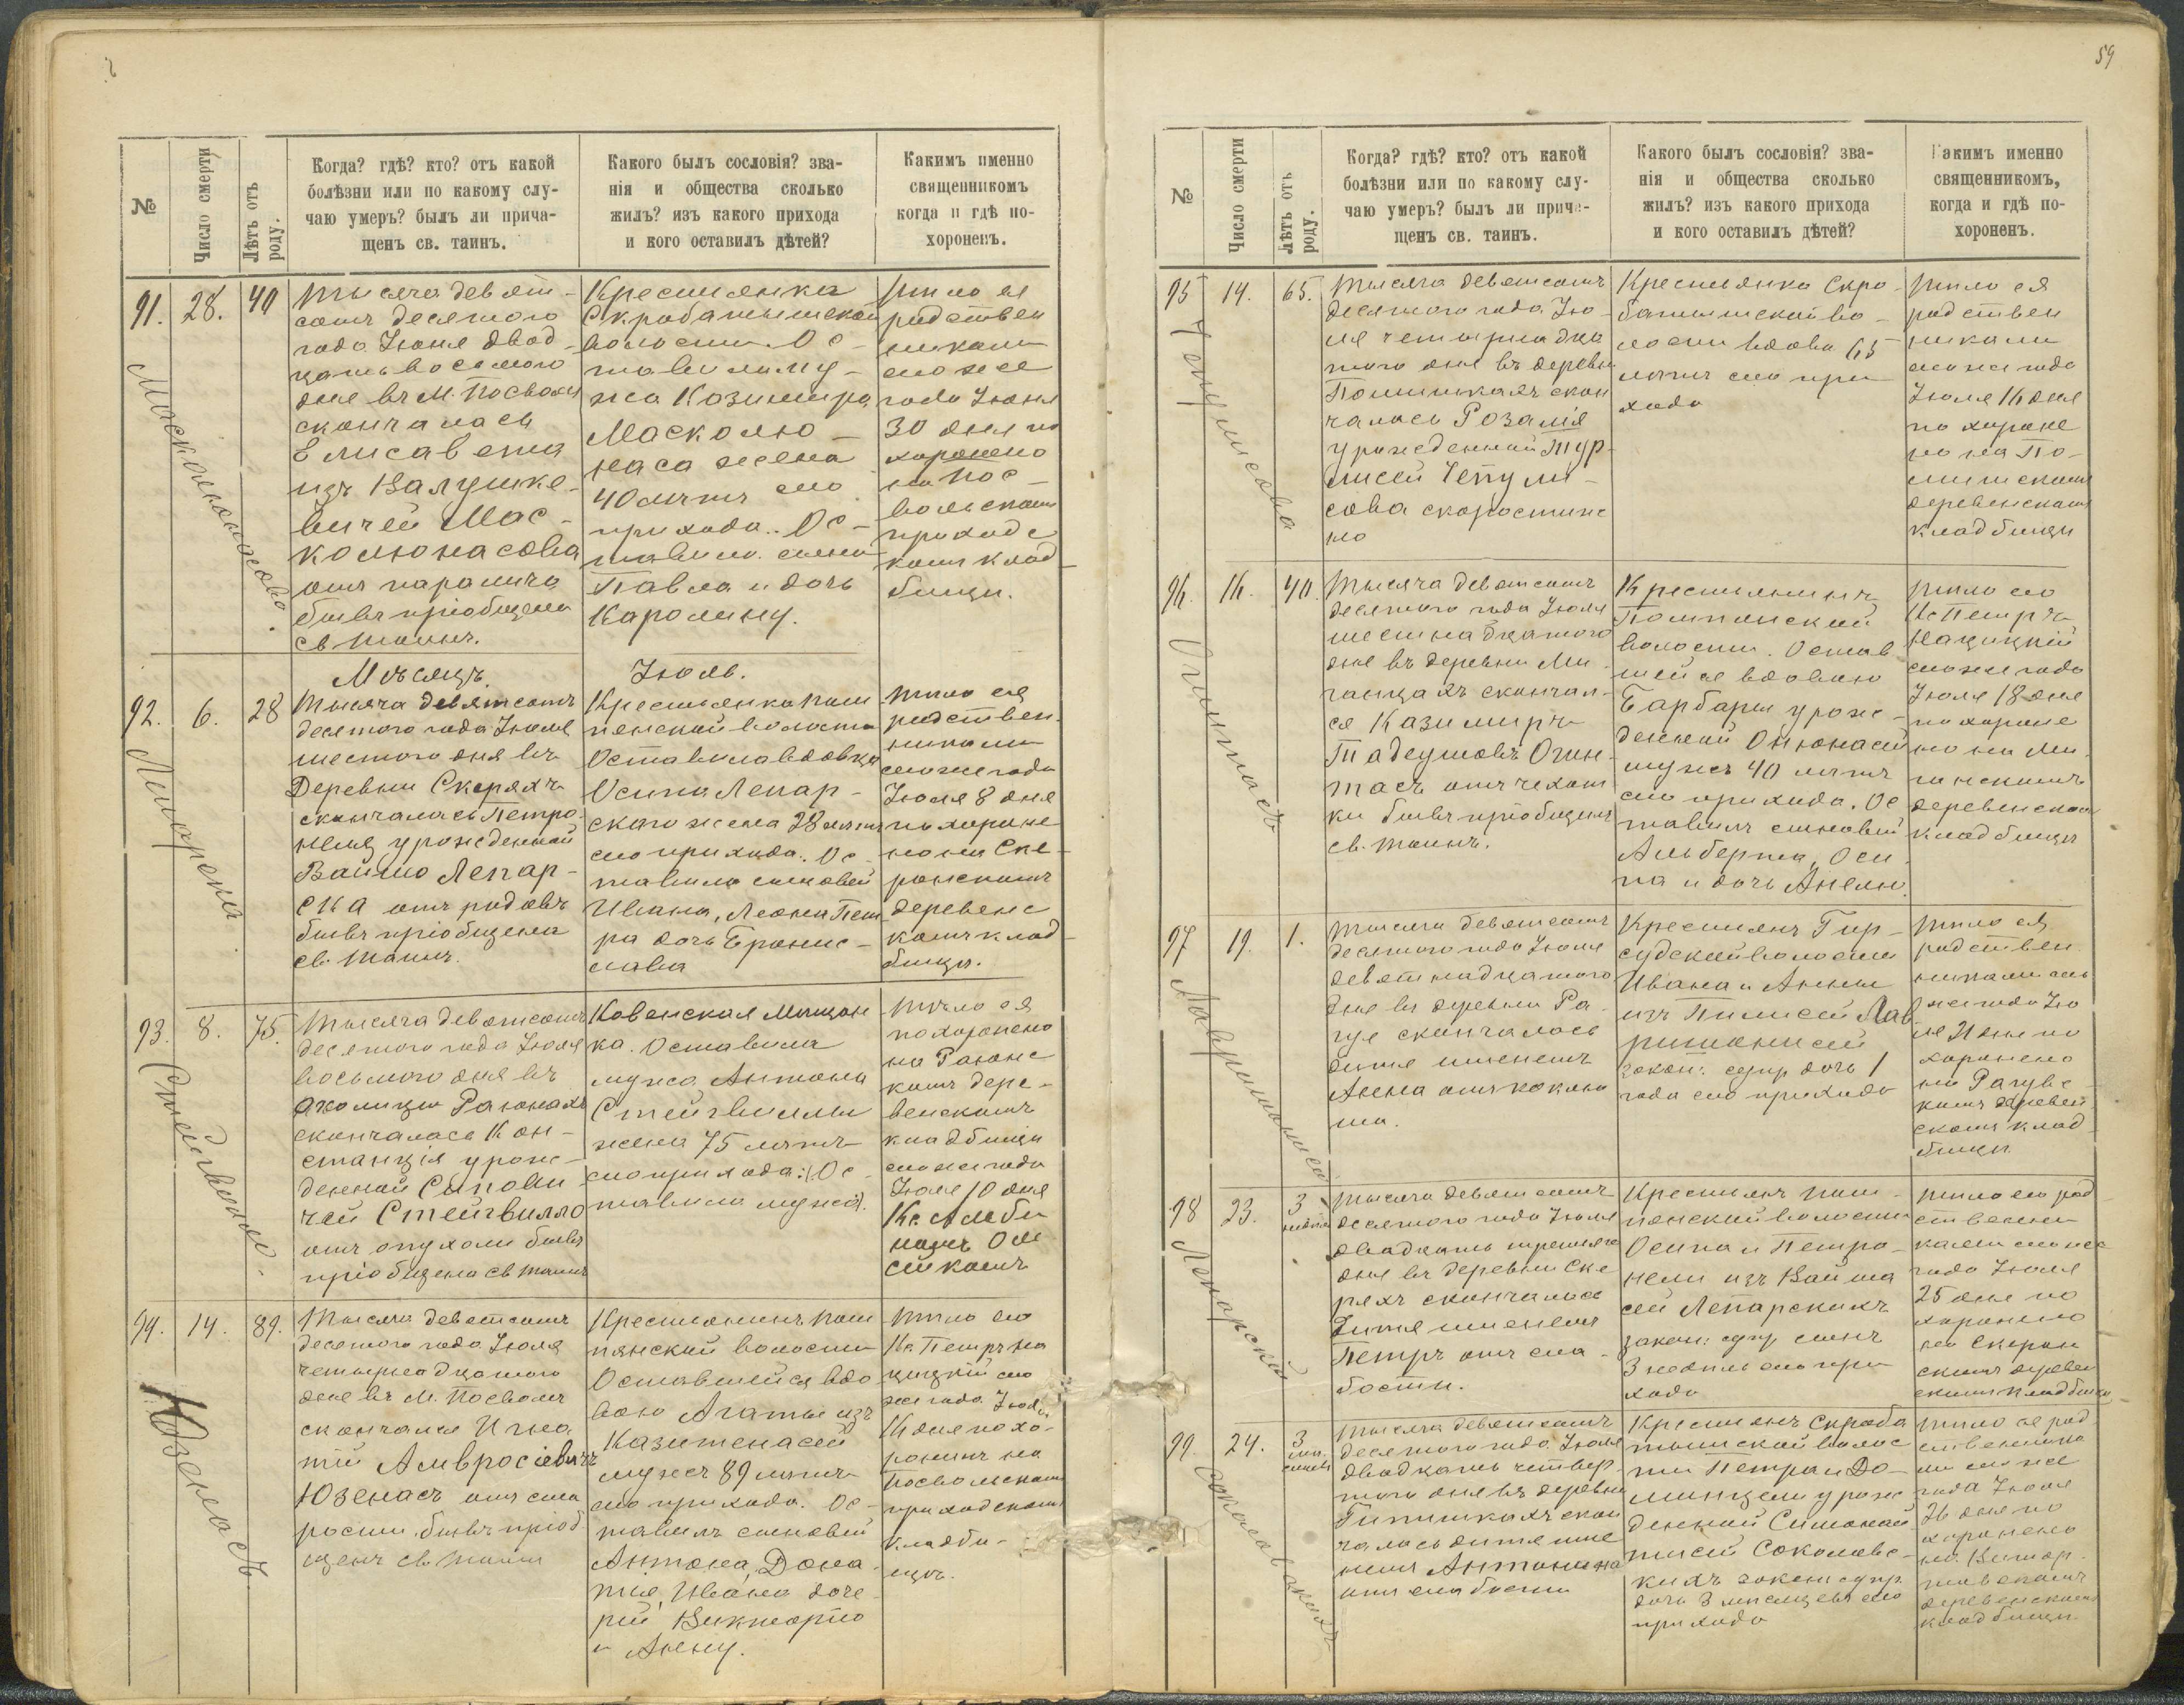 59
№
Число смерти
Лѣтъ отъ роду.
Когда? гдѣ? кто? отъ какой
болѣзни или по какому слу-
чаю умеръ? былъ ли прича-
щенъ св. таинъ.
Какого былъ сословія? зва-
нія и общества сколько
жилъ? изъ какого прихода
и кого оставилъ дѣтей?
Какимъ именно
священникомъ
когда и гдѣ по-
хороненъ.
91.
28.
40
Тысяча девять-
сотъ десятого
года Іюня двад-
цать восьмого
дня въ М. Посволи
скончалась
Елисавета
изъ Валушке-
вичей Мас-
колюнасова
отъ паралича
бывъ пріобщена
св таинъ.
Крестьянка
Скробатышской
волости. Ос-
тавила му-
жа Казимира
Масколю-
наса жена
40 лѣтъ сего
прихода. Ос-
тавила сына
Павла и дочь
Каролину.
Тѣло ея
родствен
никами
сего же
года Іюня
30 дня по
хоронено
на Пос-
вольскомъ
приходс
комъ клад
бищи.
Мѣсяцъ Іюль.
92.
6.
28
Тысяча девятсотъ
десятого года Іюля
шестого дня въ
Деревни Скеряхъ
скончалась Петро-
неля урожденной
Вайшо Лепар-
ска отъ родовъ
бывъ пріобщена
св. таинъ.
Крестьянка Пом
пянской волости
Оставила вдовца
Осипа Лепар-
скаго жена 28 лѣтъ
сего прихода. Ос-
тавила сыновей
Ивана, Леона Пет
ра дочь Бронис-
лава
Тѣло ея
родствен
никами
сего же года
Іюля 8 дня
похороне
но на Ске-
рянскомъ
деревенс
комъ клад
бищи.
93.
8.
75.
Тысяча девятсотъ
десятого года Іюля
восьмого дня въ
околицы Раюнахъ
скончалась Кон-
станція урож-
денной Сипови
чей Стейгвилло
отъ опухоли бывъ
пріобщена св таинъ
Ковенская Мѣщан
ка. Оставила
мужа Антона
Стейгвиллы
жена 75 лѣтъ
сего прихода: (Ос
тавила мужа).
Тѣло ея
похоронено
на Раюнс
комъ дере-
венскомъ
кладбищи
сего же года
Іюля 10 дня
94.
14.
89.
Тысяча девятсотъ
десятого года Іюля
четырнадцатого
дня въ М. Посволи
скончался Игна
тій Амвросіевичъ
Юзенасъ отъ ста
рости бывъ пріоб
щенъ св таинъ
Крестьянинъ Пом
пянской волости
Оставшейся вдо
вою Агаты изъ
Казитенасей
мужъ 89 лѣтъ
сего прихода. Ос-
тавилъ сыновей
Антона, Дона-
тія, Ивана доче
рей Викторію
и Анну.
Тѣло его
Кс Петръ На
цицкій сего
же года Іюля
16 дня похо-
ронилъ на
Посвольскомъ
приходскомъ
кладби-
щѣ.
Юзенасъ.
№
Число смерти
Лѣтъ отъ роду.
Когда? гдѣ? кто? отъ какой
болѣзни или по какому слу-
чаю умеръ? былъ ли прича-
щенъ св. таинъ.
Какого былъ сословія? зва-
нія и общества сколько
жилъ? изъ какого прихода
и кого оставилъ дѣтей?
Какимъ именно
священникомъ,
когда и гдѣ по-
хороненъ.
95
14.
65.
Тысяча девятсотъ
десятого года Ію-
ля четырнадца
того дня въ деревни
скон
чалась Розалія
урожденной Тур
лисова скоропостижно
Крестьянка Скро-
батышской во-
лости вдова 65
лѣтъ сего при
хода
Тѣло ея
родствен
никами
сего же года
Іюля 16 дня
похороне
но на По-
деревенскомъ
кладбищи
96.
16.
40.
Тысяча девятсотъ
десятого года Іюля
шестнадцатого
дня въ деревни Ми
ганцахъ скончал-
ся Казимиръ
Тадеушовъ Огин-
тасъ отъ чехот
ки бывъ пріобщенъ
св. таинъ.
Крестьянинъ
Помпянской
волости. Остав
шейся вдовою
Барбары урож-
денной
мужъ 40 лѣтъ
сего прихода. Ос
тавилъ сыновей
Альберта, Оси
па и дочь Анелю.
Тѣло его
Кс Петръ
Нацицкій
сего же года
Іюля 18 дня
похороне
но на Ми
ганскомъ
деревенскомъ
кладбищѣ
97
19.
1.
Тысяча девятсотъ
десятого года Іюля
девятнадцатого
дня въ деревни Ра-
гуе скончалось
дитя именемъ
Анна отъ коклю
ша.
Крестьянъ Гир-
судской волости
Ивана и Анны
закон: супр дочь 1
года сего прихода
Тѣло ея
родствен
никами сего
же года Ію
ля 21 дня по
хоронено
на Рагувс
комъ деревен
скомъ клад
бищи
98
23.
3 недѣли
Тысяча девятсотъ
десятого года Іюля
двадцать третьяго
дня въ деревни Ске
ряхъ скончалось
дитя именемъ
Петръ отъ сла-
бости.
Крестьянъ Пом-
пянской волости
Осипа и Петро-
нели изъ Вайша
сей Лепарскихъ
закон: супр сынъ
3 недѣль сего при
хода
Тѣло его род
ственни
ками сего же
года Іюля
25 дня по
хоронено
на Скерян
скомъ деревен
скомъ кладбищи
Лепарскій
99.
24.
3 мѣ. сяцевъ
Тысяча девятсотъ
десятого года Іюля
двадцать четвер-
того дня въ деревни
скон
чалась дитя име
немъ Антонина
отъ слабости
Крестьянъ Скроба
тышской волос
ти Петра и До-
мицели урож
денной
Соколовс-
кихъ закон супр.
дочь 3 мѣсяцевъ сего
прихода
Тѣло ея род
ственника
ми сего же
года Іюля
26 дня по
хоронено
деревенскомъ
кладбищи.